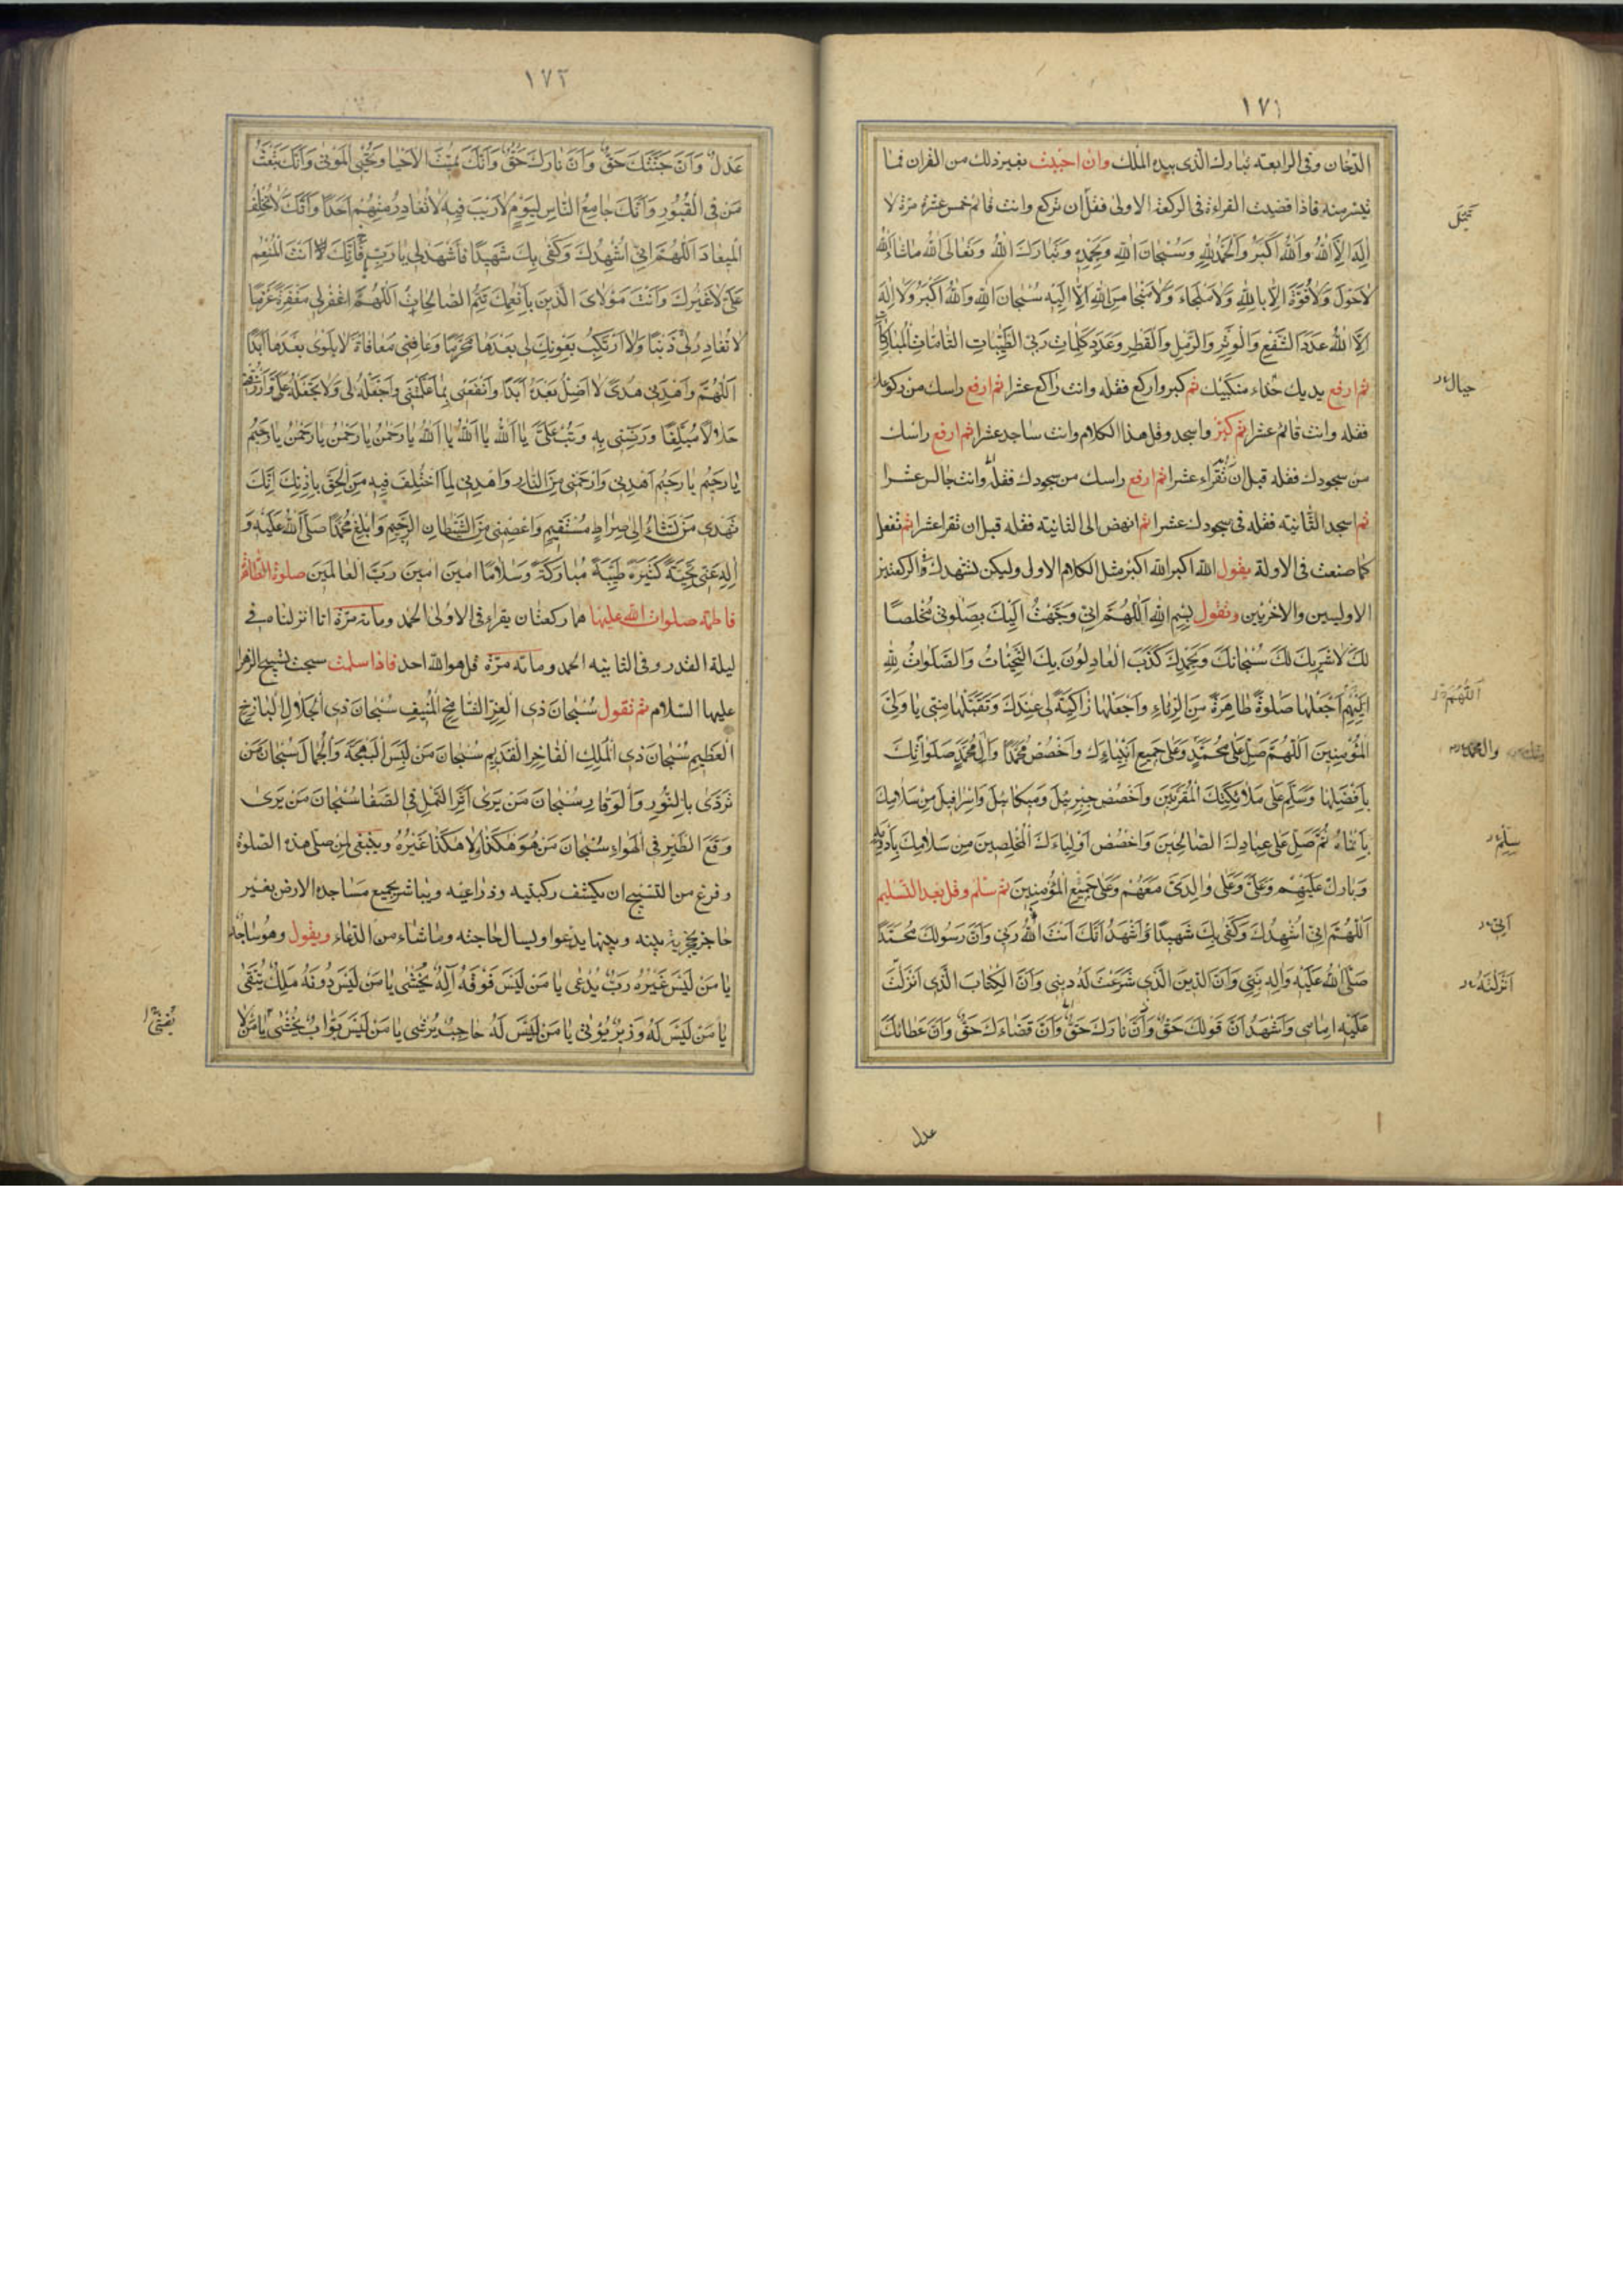 ١٧١
الدخان وفى الرابعة تبارك الذى بيده الملك وان احببت بغير ذلك من القران فما
تيسر منه فاذا قضيت القراءة فى الركعة الاولى فقل ان تركع وانت قائم خمس عشرة مرة لا
اِلهَ اِلاَّ اللهُ وَاللهُ اَكْبَرُ وَالْحَمْدُ لِلّهِ وَسُبْحانَ اللهِ وَبِحَمْدِهِ وَتَبارَكَ اللهُ وَتَعالَى اللهُ ماشاءَ اللهُ
لاحَوْلَ وَلاقُوَّةَ اِلاّ بِاللهِ وَلامَلْجَاءَ وَلامَنْجا مِنَ اللهِ اِلاّ اِلَيْهِ سُبْحانَ اللهِ وَاللهُ اَكْبَرُ وَلا اِلهَ
اِلاَّ اللهُ عَدَدَ الشَّفْعِ وَالْوَتْرِ وَالرَّمْلِ وَالْقَطْرِ وَعَدَدِ كَلِماتِ رَبِّى الطَّيِّباتِ التّامّاتِ الْمُبارَكاتِ
ثم ارفع يديك حذاء منكبيك ثم كبر واركع فقله وانت راكع عشرا ثم ارفع راسك من ركوعك
فقله وانت قائم عشرا ثم كبر واسجد وقل هذا الكلام وانت ساجد عشرا ثم ارفع راسك
من سجودك فقله قبل ان تقراء عشرا ثم ارفع راسك من سجودك فقله وانت جالس عشرا
ثم اسجد الثانية فقله فى سجودك عشرا ثم انهض الى الثانية فقله قبل ان تقرا عشرا ثم تفعل
كما صنعت فى الاولة يقول الله اكبر الله اكبر مثل الكلام الاول وليكن تشهدك فى الركعتين
الاوليين والاخريين وتقول بِسْمِ اللهِ اَللّهُمَّ اِنّى وَجَّهْتُ اِلَيْكَ بِصَلوتى مُخْلِصًا
لَكَ لاشَرِيكَ لَكَ سُبْحانَكَ وَبِحَمْدِكَ كَذَبَ الْعادِلُونَ بِكَ التَّحِيّاتُ وَالصَّلَواتُ لِلّهِ
اَللّهُمَّ اجْعَلْها صَلوةً طاهِرَةً مِنَ الرِّياءِ وَاجْعَلْها زاكِيَةً لى عِنْدَكَ وَتَقَبَّلْها مِنّى يا وَلِىَّ
الْمُؤْمِنينَ اَللّهُمَّ صَلِّ عَلى مُحَمَّدٍ وَعَلى جَميعِ اَنْبِياءِكَ وَاخْصُصْ مُحَمَّدًا وَآلَ مُحَمَّدٍ صَلَواتِكَ
بِاَفْضَلِها وَسَلِّمْ عَلى مَلائِكَتِكَ الْمُقَرَّبينَ وَاخْصُصْ جِبْرِئيلَ وَميكائيلَ وَاِسْرافيلَ مِنْ سَلامِكَ
ثُمَّ صَلِّ عَلى عِبادِكَ الصّالِحينَ وَاخْصُصْ اَوْلِياءَكَ الْمُخْلِصينَ مِنْ سَلامِكَ
وَبارِكْ عَلَيْهِمْ وَعَلَىَّ وَعَلى والِدَىَّ مَعَهُمْ وَعَلى جَميعِ الْمُؤْمِنينَ ثم سلم وقل بعد التسليم
اَللّهُمَّ اِنّى اُشْهِدُكَ وَكَفى بِكَ شَهيدًا وَاَشْهَدُ اَنَّكَ اَنْتَ اللهُ رَبّى وَاَنَّ رَسُولَكَ مُحَمَّدًا
صَلَّى اللهُ عَلَيْهِ وَالِهِ نَبِيّى وَاَنَّ الدّينَ الَّذى شَرَعْتَ لَهُ دينى وَاَنَّ الْكِتابَ الَّذى اَنْزَلْتَ
عَلَيْهِ اِمامى وَاَشْهَدُ اَنَّ قَوْلَكَ حَقٌّ وَاَنَّ نارَكَ حَقٌّ وَاَنَّ قَضاءَكَ حَقٌّ وَاَنَّ عَطائَكَ
عدل
حيال
اَللّهُمَّ
والمحمد
سَلِّمْ
اَنّى
اَنْزَلْتَهُ
١٧٢
عَدْلٌ وَاَنَّ جَنَّتَكَ حَقٌّ وَاَنَّ نارَكَ حَقٌّ وَاَنَّكَ تُميتُ الاَحْيا وَتُحْيِى الْمَوْتى وَاَنَّكَ تَبْعَثُ
مَنْ فِى الْقُبُورِ وَاَنَّكَ جامِعُ النّاسِ لِيَوْمٍ لارَيْبَ فيهِ لاتُغادِرُ مِنْهُمْ اَحَدًا وَاَنَّكَ لاتُخْلِفُ
الْميعادَ اَللّهُمَّ اِنّى اُشْهِدُكَ وَكَفى بِكَ شَهيدًا فَاشْهَدْ لى يا رَبِّ فَاِنَّكَ اَنْتَ الْمُنْعِمُ
عَلَىَّ لاغَيْرُكَ وَاَنْتَ مَوْلاىَ الَّذى بِاَنْعُمِكَ تَتِمُّ الصّالِحاتُ اَللّهُمَّ اغْفِرْ لى مَغْفِرَةً عَزْمًا
لاتُغادِرُ لى ذَنْبًا وَلا اَرْتَكِبُ بِعَوْنِكَ لى بَعْدَها مُحَرَّمًا وَعافِنى مُعافاةً لابَلْوى بَعْدَها اَبَدًا
اَللّهُمَّ وَاهْدِنى هُدًى لا اَضِلُّ بَعْدَهُ اَبَدًا وَانْفَعْنى بِما عَلَّمْتَنى وَاجْعَلْهُ لى وَلاتَجْعَلْهُ عَلَىَّ وَارْزُقْنى
حَلالاً مُبَلِّغًا وَرَضِّنى بِهِ وَتُبْ عَلَىَّ يا اَللهُ يا اَللهُ يا اَللهُ يا رَحْمنُ يا رَحْمنُ يا رَحْمنُ يا رَحيمُ
يا رَحيمُ يا رَحيمُ اهْدِنى وَارْحَمْنى مِنَ النّارِ وَاهْدِنى لِمَا اخْتُلِفَ فيهِ مِنَ الْحَقِّ بِاِذْنِكَ اِنَّكَ
تَهْدى مَنْ تَشاءُ اِلى صِراطٍ مُسْتَقيمٍ وَاعْصِمْنى مِنَ الشَّيْطانِ الرَّجيمِ وَاَبْلِغْ مُحَمَّدًا صَلَّى اللهُ عَلَيْهِ وَ
الِهِ عَنّى تَحِيَّةً كَثيرَةً طَيِّبَةً مُبارَكَةً وَسَلامًا امينَ امينَ رَبَّ الْعالَمينَ صلوة الطاهرة
فاطمة صلوات الله عليها هما ركعتان يقراء فى الاولى الحمد ومائة مرة انا انزلناه فى
ليلة القدر وفى الثانيه الحمد ومائه مرة قل هو الله احد فاذا سلمت سبحت تسبيح الزهرا
عليها السلام ثم تقول سُبْحانَ ذِى الْعِزِّ الشّامِخِ الْمُنيفِ سُبْحانَ ذِى الْجَلالِ الْباذِخِ
الْعَظيمِ سُبْحانَ ذِى الْمُلْكِ الْفاخِرِ الْقَديمِ سُبْحانَ مَنْ لَبِسَ الْبَهْجَةَ وَالْجَمالَ سُبْحانَ مَنْ
تَرَدّى بِالنُّورِ وَالْوَقارِ سُبْحانَ مَنْ يَرى اَثَرَ النَّمْلِ فِى الصَّفا سُبْحانَ مَنْ يَرى
وَقْعَ الطَّيْرِ فِى الْهَواءِ سُبْحانَ مَنْ هُوَ هكَذا وَلا هكَذا غَيْرُهُ وينبغى لمن صلى هذه الصلوة
وفرغ من التسبيح ان يكشف ركبتيه وذراعيه ويباشر بجميع مساجده الارض بغير
حاجز يحجز بينه وبينها يدعوا ويسال حاجته وماشاء من الدعاء ويقول وهو ساجد
يا مَنْ لَيْسَ غَيْرُهُ رَبٌّ يُدْعى يا مَنْ لَيْسَ فَوْقَهُ اِلهٌ يُخْشى يا مَنْ لَيْسَ دُونَهُ مَلِكٌ يُتَّقى
يا مَنْ لَيْسَ لَهُ وَزيرٌ يُؤْتى يا مَنْ لَيْسَ لَهُ حاجِبٌ يُرْشى يا مَنْ لَيْسَ بَوّابٌ يُغْشى يا مَنْ لا